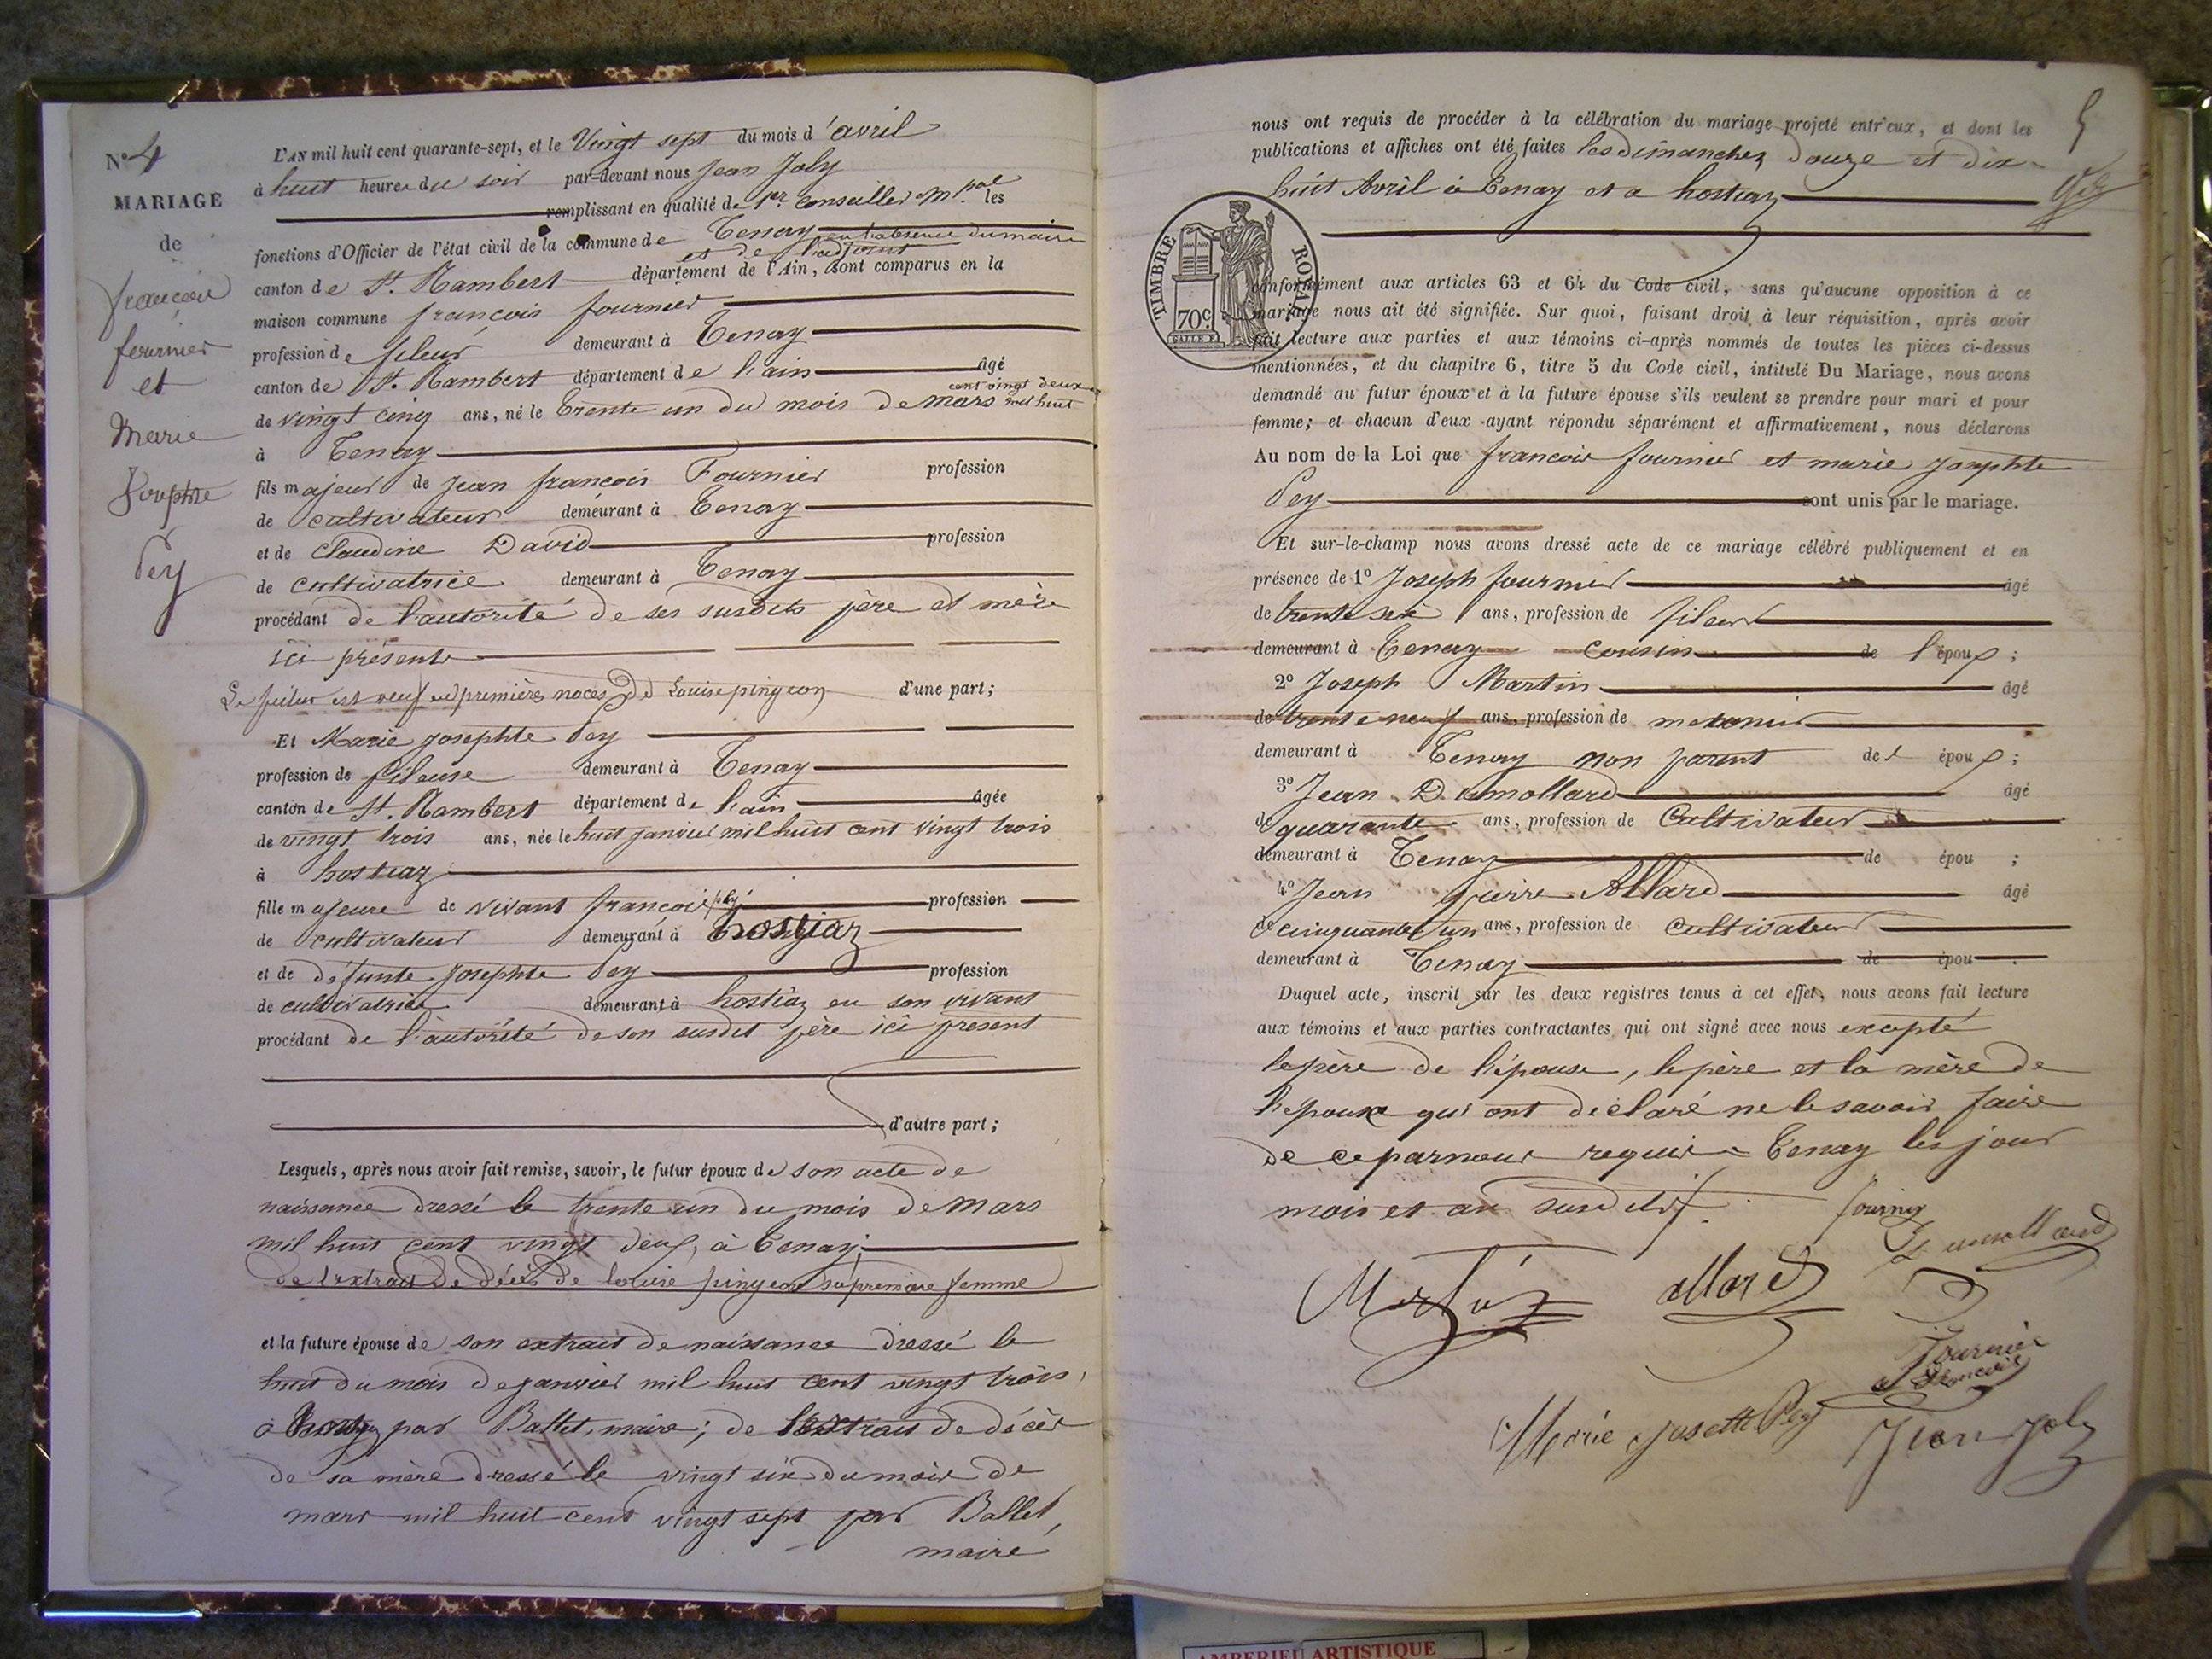 N° 4
MARIAGE
de
françois
fournier
et
Marie
Josephte
Pey
L'AN mil huit cent quarante-sept, et le Vingt sept du mois d'avril
à huit heures du soir par-devant nous Jean Joly
remplissant en qualité de 1er Conseiller Mpal les
fonctions d'Officier de l'état civil de la commune de Tenay en l'absence du maire
et de l'adjoint
canton de St. Rambert département de l'Ain, sont comparus en la
maison commune françois fournier
profession de fileur demeurant à Tenay
canton de St. Rambert département de l'ain âgé
de vingt cinq ans, né le trente un du mois de mars mil huit
cent vingt deux
à Tenay
fils majeur de Jean françois Fournier profession
de cultivateur demeurant à Tenay
et de Claudine David profession
de cultivatrice demeurant à Tenay
procédant de l'autorité de ses susdits père et mère
ici présents
Le futur est veuf en premières noces de Louise pingeon d'une part;
Et Marie josephte Pey
profession de fileuse demeurant à Tenay
canton de St. Rambert département de l'ain âgée
de vingt trois ans, née le huit janvier mil huit cent vingt trois
à hostiaz
fille majeure de vivant françois Pey profession
de cultivateur demeurant à hostiaz
et de défunte Josephte Pey profession
de cultivatrice demeurant à hostiaz en son vivant
procédant de l'autorité de son susdit père ici présent
d'autre part;
Lesquels, après nous avoir fait remise, savoir, le futur époux de son acte de
naissance dressé le trente un du mois de mars
mil huit cent vingt deux, à Tenay;
de l'extrait de décès de louise pingeon sa première femme
et la future épouse de son extrait de naissance dressé le
huit du mois de janvier mil huit cent vingt trois,
à par Ballet, maire; de l'extrait de décès
de sa mère dressé le vingt six du mois de
mars mil huit cent vingt sept par Ballet,
maire
5
nous ont requis de procéder à la célébration du mariage projeté entr'eux, et dont les
publications et affiches ont été faites les dimanches douze et dix
huit Avril à Tenay et a hostiaz
TIMBRE ROYAL
70c
conformément aux articles 63 et 64 du Code civil, sans qu'aucune opposition à ce
mariage nous ait été signifiée. Sur quoi, faisant droit à leur réquisition, après avoir
fait lecture aux parties et aux témoins ci-après nommés de toutes les pièces ci-dessus
mentionnées, et du chapitre 6, titre 5 du Code civil, intitulé Du Mariage, nous avons
demandé au futur époux et à la future épouse s'ils veulent se prendre pour mari et pour
femme; et chacun d'eux ayant répondu séparément et affirmativement, nous déclarons
Au nom de la Loi que francois fournier et marie josephte
Pey sont unis par le mariage.
Et sur-le-champ nous avons dressé acte de ce mariage célébré publiquement et en
présence de 1° Joseph fournier âgé
de trente six ans, profession de fileur
demeurant à Tenay cousin de l'époux;
2° Joseph Martin âgé
de trente neuf ans, profession de
demeurant à Tenay non parent de l époux;
3° Jean Dumollard âgé
de quarante ans, profession de Cultivateur
demeurant à Tenay de épou ;
4° Jean pierre Allard âgé
de cinquante un ans, profession de cultivateur
demeurant à Tenay de épou .
Duquel acte, inscrit sur les deux registres tenus à cet effet, nous avons fait lecture
aux témoins et aux parties contractantes qui ont signé avec nous excepté
le père de l'épouse, le père et la mère de
l'epoux qui ont déclaré ne le savoir faire
de ce par nous requis à Tenay les jour
mois et an susdits.
fournier
Dumollard
Martin
allard
Fournier
francois
Marie Josette Pey
Jean Joly
AMBERIEU ARTISTIQUE